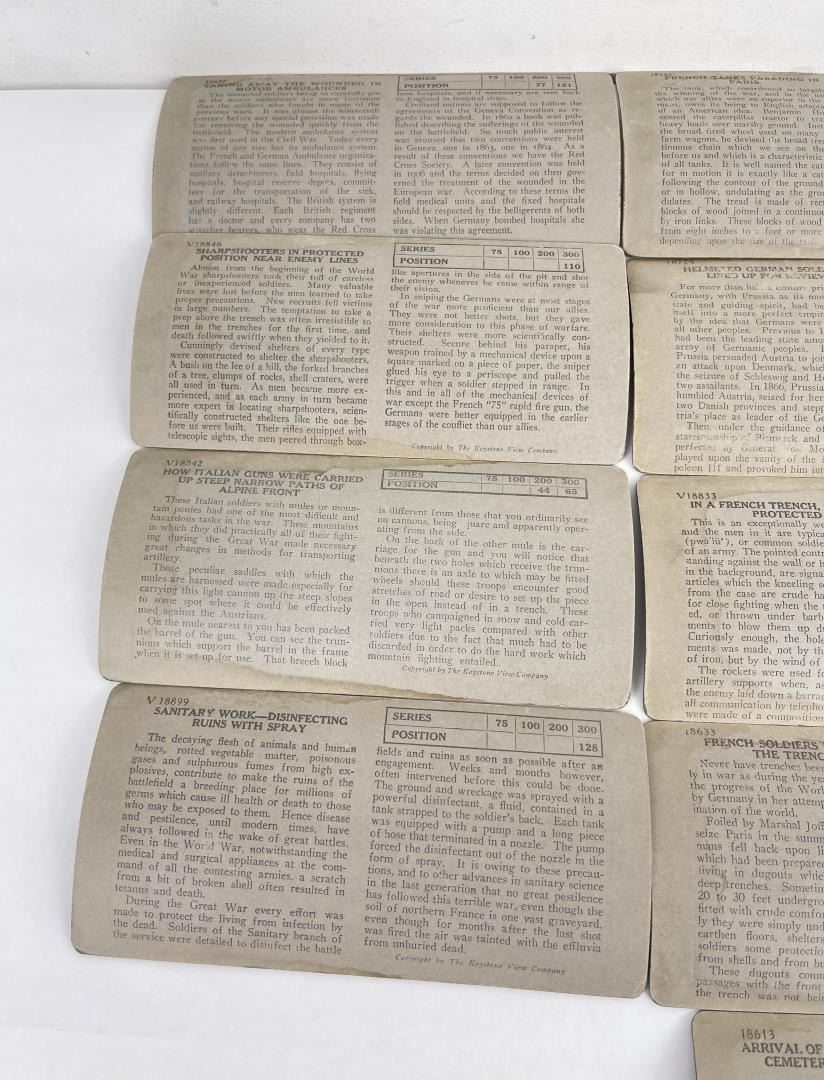 TAKING AWAY THE WOUNDED IN
MOTOR AMBULANCES
in the motor ambulance are more fortunate
than the soldiers who fought in many of the
previous wars. It was almost the nineteenth
century before any special provision was made
for removing the wounded quickly from the
battlefield. The modern ambulance system
was first used in the Civil War. Today every
nation of any size has its ambulance system.
The French and German Ambulance organiza-
tions follow the same lines. They consist of
sanitary detachments, field hospitals, flying
hospitals, hospital reserve depots, commit-
tees for the transportation of the sick,
and railway hospitals. The British system is
slightly different. Each British regiment
has a doctor and every company has two
stretcher bearers, who wear the Red Cross
SERIES 75 100 200 300
POSITION 77 121
base hospitals, and if necessary are sent back
to England in hospital ships.
Civilized nations are supposed to follow the
agreement of the Geneva Convention as re-
gards the wounded. In 1862 a book was pub-
lished describing the sufferings of the wounded
on the battlefield. So much public interest
was aroused that two conventions were held
in Geneva, one in 1863, one in 1864. As a
result of these conventions we have the Red
Cross Society. A later convention was held
in 1906 and the terms decided on then gov-
erned the treatment of the wounded in the
European war. According to these terms the
field medical units and the fixed hospitals
should be respected by the belligerents of both
sides. When Germany bombed hospitals she
was violating this agreement.
V18846
SHARPSHOOTERS IN PROTECTED
POSITION NEAR ENEMY LINES
Almost from the beginning of the World
War sharpshooters took their toll of careless
or inexperienced soldiers. Many valuable
lives were lost before the men learned to take
proper precautions. New recruits fell victims
in large numbers. The temptation to take a
peep above the trench was often irresistible to
men in the trenches for the first time, and
death followed swiftly when they yielded to it.
Cunningly devised shelters of every type
were constructed to shelter the sharpshooters.
A bush on the lee of a hill, the forked branches
of a tree, clumps of rocks, shell craters, were
all used in turn. As men became more ex-
perienced, and as each army in turn became
more expert in locating sharpshooters, scien-
tifically constructed shelters like the one be-
fore us were built. Their rifles equipped with
telescopic sights, the men peered through box-
SERIES 75 100 200 300
POSITION 110
like apertures in the side of the pit and shot
the enemy whenever he came within range of
their vision.
In sniping the Germans were at most stages
of the war more proficient than our allies.
They were not better shots, but they gave
more consideration to this phase of warfare.
Their shelters were more scientifically con-
structed. Secure behind his parapet, his
weapon trained by a mechanical device upon a
square marked on a piece of paper, the sniper
glued his eye to a periscope and pulled the
trigger when a soldier stepped in range. In
this and in all of the mechanical devices of
war except the French "75" rapid fire gun, the
Germans were better equipped in the earlier
stages of the conflict than our allies.
Copyright by The Keystone View Company
V18842
HOW ITALIAN GUNS WERE CARRIED
UP STEEP NARROW PATHS OF
ALPINE FRONT
These Italian soldiers with mules or moun-
tain ponies had one of the most difficult and
hazardous tasks in the war. These mountains
in which they did practically all of their fight-
ing during the Great War made necessary
great changes in methods for transporting
artillery.
Those peculiar saddles with which the
mules are harnessed were made especially for
carrying this light cannon up the steep slopes
to some spot where it could be effectively
used against the Austrians.
On the mule nearest to you has been packed
the barrel of the gun. You can see the trun-
nions which support the barrel in the frame
when it is set up for use. That breech block
SERIES 75 100 200 300
POSITION 44 65
is different from those that you ordinarily see
on cannons, being quare and apparently oper-
ating from the side.
On the back of the other mule is the car-
riage for the gun and you will notice that
beneath the two holes which receive the trun-
nions there is an axle to which may be fitted
wheels should these troops encounter good
stretches of road or desire to set up the piece
in the open instead of in a trench. These
troops who campaigned in snow and cold car-
ried very light packs compared with other
soldiers due to the fact that much had to be
discarded in order to do the hard work which
mountain fighting entailed.
Copyright by The Keystone View Company
V 18899
SANITARY WORK—DISINFECTING
RUINS WITH SPRAY
The decaying flesh of animals and human
beings, rotted vegetable matter, poisonous
gases and sulphurous fumes from high ex-
plosives, contribute to make the ruins of the
battlefield a breeding place for millions of
germs which cause ill health or death to those
who may be exposed to them. Hence disease
and pestilence, until modern times, have
always followed in the wake of great battles.
Even in the World War, notwithstanding the
medical and surgical appliances at the com-
mand of all the contesting armies, a scratch
from a bit of broken shell often resulted in
tetanus and death.
During the Great War every effort was
made to protect the living from infection by
the dead. Soldiers of the Sanitary branch of
the service were detailed to disinfect the battle
SERIES 75 100 200 300
POSITION 128
fields and ruins as soon as possible after an
engagement. Weeks and months however,
often intervened before this could be done.
The ground and wreckage was sprayed with a
powerful disinfectant, a fluid, contained in a
tank strapped to the soldier's back. Each tank
was equipped with a pump and a long piece
of hose that terminated in a nozzle. The pump
forced the disinfectant out of the nozzle in the
form of spray. It is owing to these precau-
tions, and to other advances in sanitary science
in the last generation that no great pestilence
has followed this terrible war, even though the
soil of northern France is one vast graveyard,
even though for months after the last shot
was fired the air was tainted with the effluvia
from unburied dead.
Copyright by The Keystone View Company
FRENCH TANKS PARADING IN
PARIS
The tank, which contributed so largely
the winning of the war, and in the use
which our allies were so superior to the
of an American idea. Benjamin Ho
vented the caterpillar tractor to tra
heavy loads over marshy ground. Inst
the broad tired wheel used on many
farm wagons, he devised the broad trea
tinuous chain which we see on the
before us and which is a characteristic
of all tanks. It is well named the cat
for in motion it is exactly like a cat
following the contour of the ground
or in hollow, undulating as the grou
dulates. The tread is made of rect
blocks of wood joined in a continuou
by iron links. These blocks of wood
from eight inches to a foot or more
depending upon the size of the tank
HELMETED GERMAN SOL
LINED UP FOR REVIEW
For more than ha a century pri
Germany, with Prussia as its mo
state and guiding spirit, had be
itself into a more perfect empir
by the idea that Germans were
all other peoples. Previous to 1
had been the leading state amo
array of Germanic peoples. I
Prussia persuaded Austria to joi
an attack upon Denmark, whic
the seizure of Schleswig and Ho
two assailants. In 1866, Prussia
humbled Austria, seized for her
two Danish provinces and stepp
tria's place as leader of the Ge
Then, under the guidance of
statesmanship of Bismarck and
perfected by General von Mo
played upon the vanity of the
poleon III and provoked him int
V18833
IN A FRENCH TRENCH,
PROTECTED
This is an exceptionally we
and the men in it are typica
(pwä'lü'), or common soldie
of an army. The pointed contr
standing against the wall or h
in the background, are signa
articles which the kneeling s
from the case are crude ha
for close fighting when the
ed, or thrown under barb
ments to blow them up du
Curiously enough, the hole
ments was made, not by th
of iron, but by the wind of
The rockets were used fo
artillery supports when, as
the enemy laid down a barrag
all communication by telepho
were made of a composition
18633
FRENCH SOLDIERS
THE TRENC
Never have trenches bee
ly in war as during the yea
the progress of the Worl
by Germany in her attemp
ination of the world.
Foiled by Marshal Joff
seize Paris in the summ
mans fell back upon li
which had been prepare
living in dugouts whic
deep trenches. Sometim
20 to 30 feet undergro
fitted with crude comfor
ly they were simply und
earthen floors, shelters
soldiers some protectio
from shells and from bu
These dugouts comm
passages with the front
the trench was not bein
18613
ARRIVAL OF
CEMETER